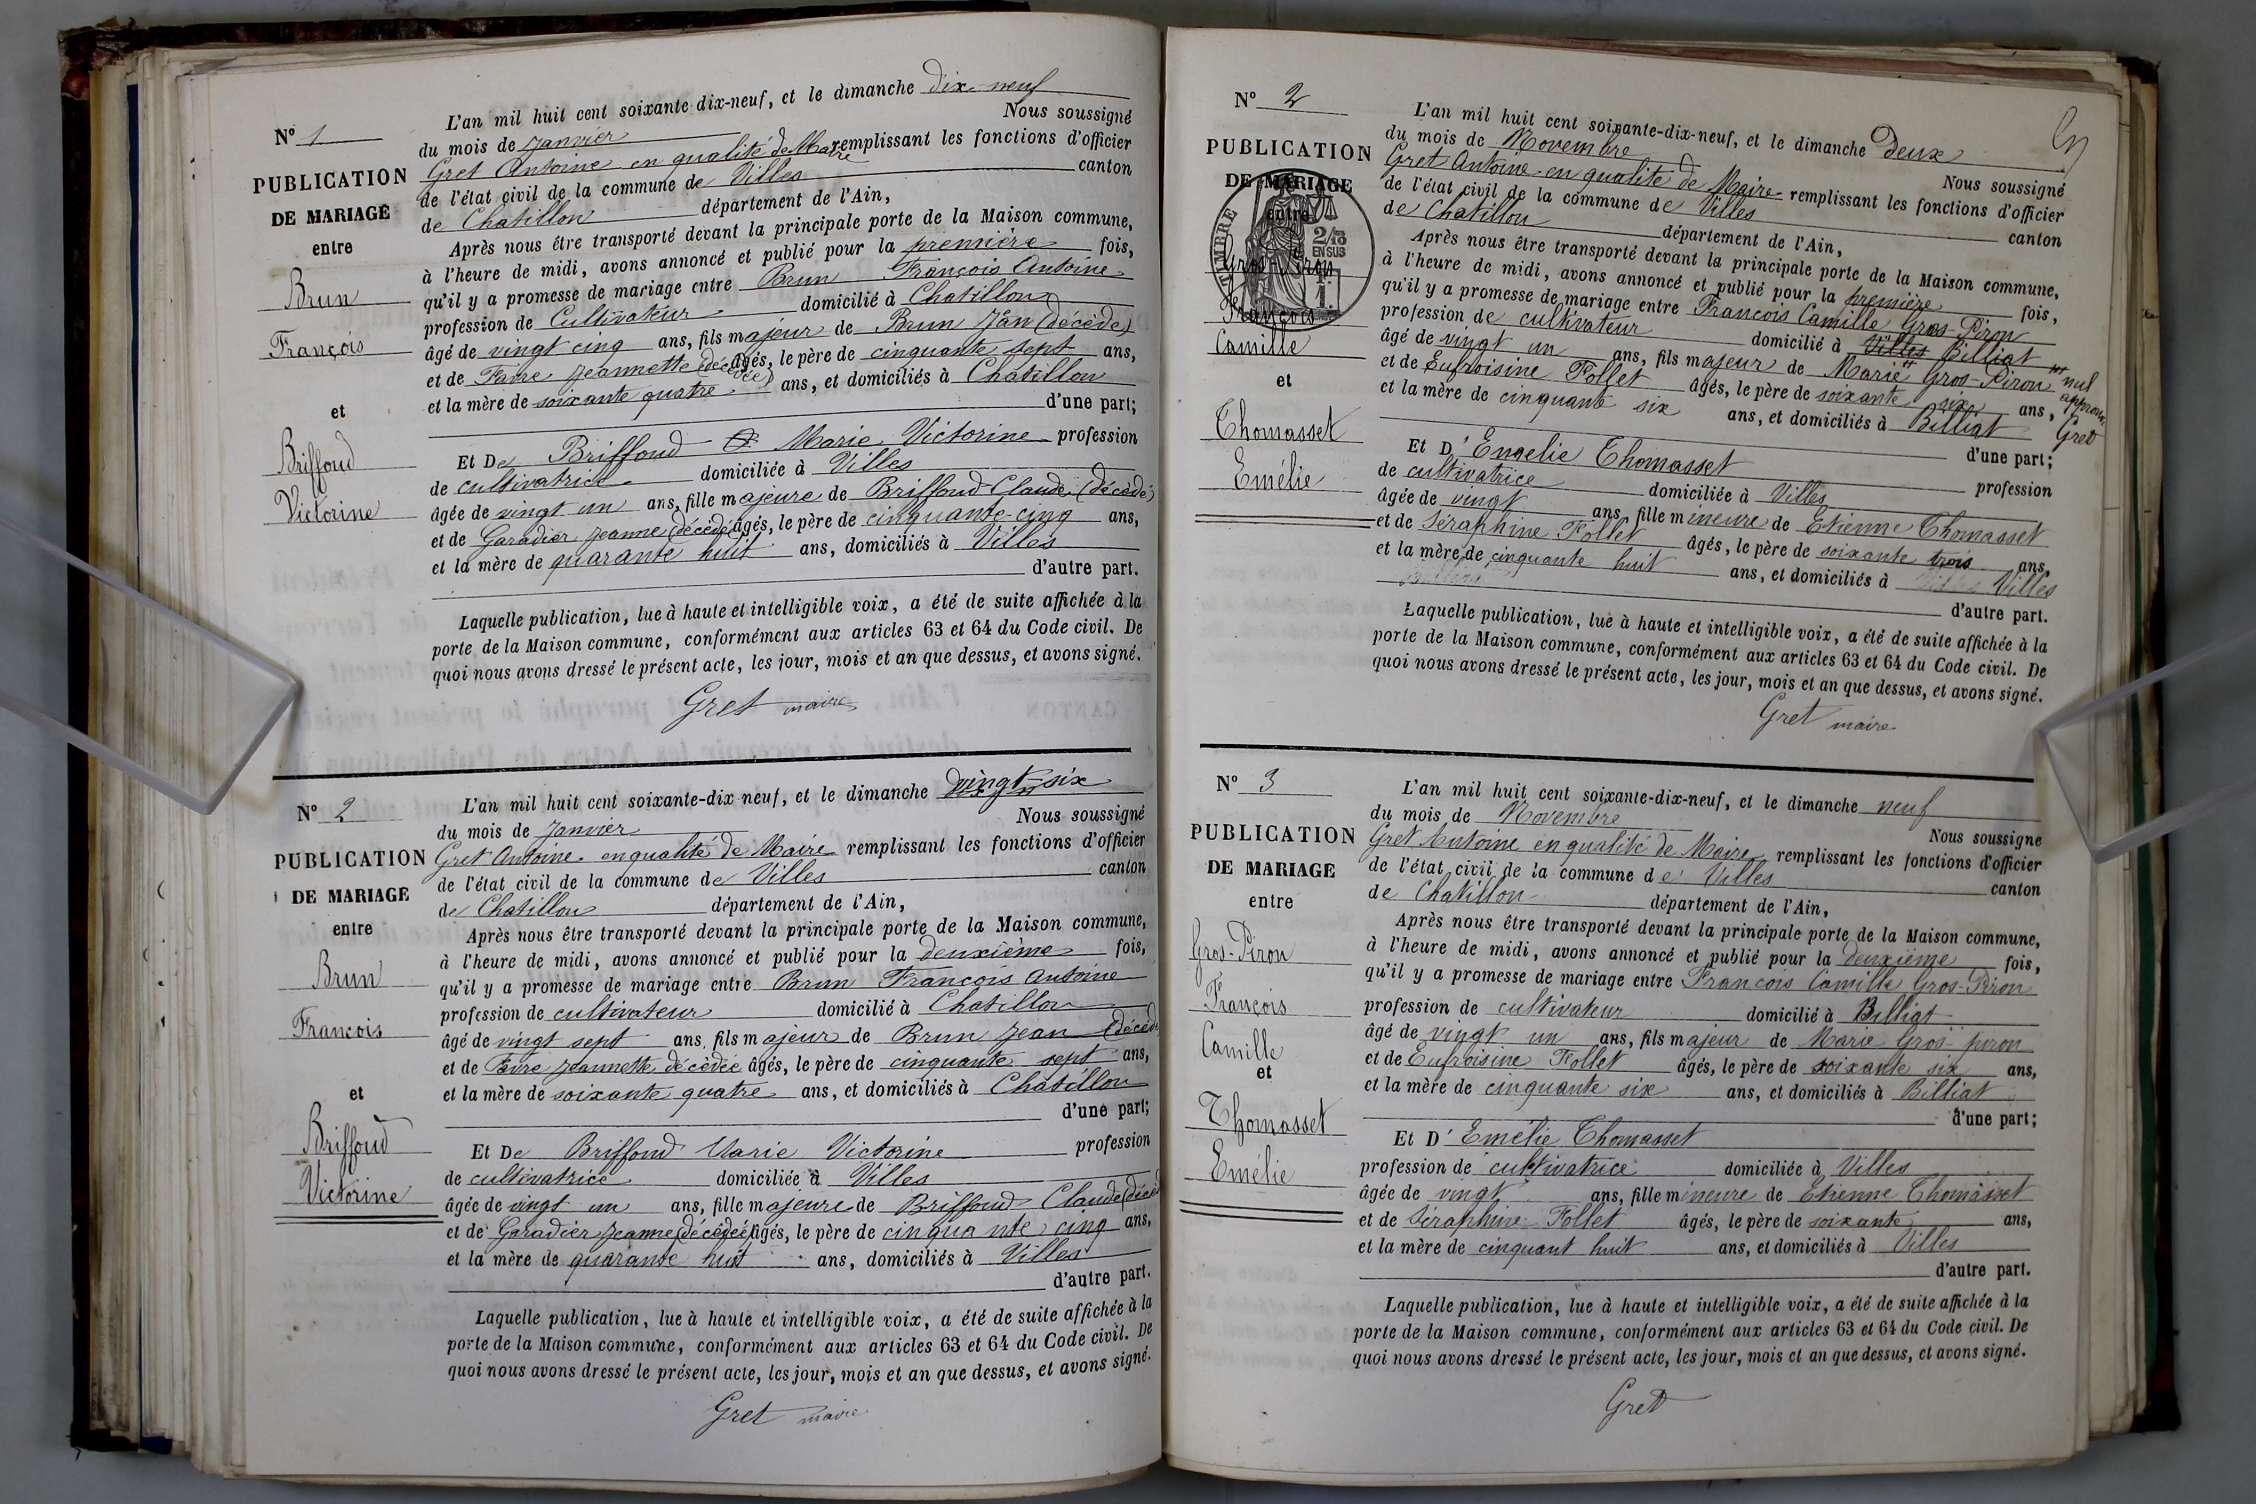 N° 1
PUBLICATION
DE MARIAGE
entre
Brun
François
et
Briffoud
Victorine
L'an mil huit cent soixante-dix-neuf, et le dimanche dix-neuf
du mois de Janvier Nous soussigné
Gret Antoine en qualité de Maire remplissant les fonctions d'officier
de l'état civil de la commune de Villes canton
de Chatillon département de l'Ain,
Après nous être transporté devant la principale porte de la Maison commune,
à l'heure de midi, avons annoncé et publié pour la première fois,
qu'il y a promesse de mariage entre Brun François Antoine
profession de Cultivateur domicilié à Chatillon
âgé de vingt cinq ans, fils majeur de Brun Jean (décédé)
et de Favre Jeannette (décédée) âgés, le père de cinquante sept ans,
et la mère de soixante quatre ans, et domiciliés à Chatillon
d'une part;
Et De Briffoud Marie Victorine profession
de cultivatrice domiciliée à Villes
âgée de vingt un ans, fille majeure de Briffoud Claude (décédé)
et de Garadier Jeanne (décédée) âgés, le père de cinquante-cinq ans,
et la mère de quarante huit ans, domiciliés à Villes
d'autre part.
Laquelle publication, lue à haute et intelligible voix, a été de suite affichée à la
porte de la Maison commune, conformément aux articles 63 et 64 du Code civil. De
quoi nous avons dressé le présent acte, les jour, mois et an que dessus, et avons signé.
Gret maire
N° 2
PUBLICATION
DE MARIAGE
entre
Brun
François
et
Briffoud
Victorine
L'an mil huit cent soixante-dix-neuf, et le dimanche vingt-six
du mois de Janvier Nous soussigné
Gret Antoine en qualité de Maire remplissant les fonctions d'officier
de l'état civil de la commune de Villes canton
de Chatillon département de l'Ain,
Après nous être transporté devant la principale porte de la Maison commune,
à l'heure de midi, avons annoncé et publié pour la deuxième fois,
qu'il y a promesse de mariage entre Brun François Antoine
profession de cultivateur domicilié à Chatillon
âgé de vingt sept ans, fils majeur de Brun Jean (décédé
et de Favre Jeannette décédée âgés, le père de cinquante sept ans,
et la mère de soixante quatre ans, et domiciliés à Chatillon
d'une part;
Et De Briffoud Marie Victorine profession
de cultivatrice domiciliée à Villes
âgée de vingt un ans, fille majeure de Briffoud Claude (décéd
et de Garadier Jeanne (décédée) âgés, le père de cinquante cinq ans,
et la mère de quarante huit ans, domiciliés à Villes
d'autre part.
Laquelle publication, lue à haute et intelligible voix, a été de suite affichée à la
porte de la Maison commune, conformément aux articles 63 et 64 du Code civil. De
quoi nous avons dressé le présent acte, les jour, mois et an que dessus, et avons signé.
Gret maire
N° 2
PUBLICATION
DE MARIAGE
entre
TIMBRE
2/10
EN SUS
Gros-Piron
François
Camille
et
Thomasset
Emélie
L'an mil huit cent soixante-dix-neuf, et le dimanche deux
du mois de Novembre Nous soussigné
Gret Antoine en qualité de Maire remplissant les fonctions d'officier
de l'état civil de la commune de Villes canton
de Chatillon département de l'Ain,
Après nous être transporté devant la principale porte de la Maison commune,
à l'heure de midi, avons annoncé et publié pour la première fois,
qu'il y a promesse de mariage entre François Camille Gros-Piron
profession de cultivateur domicilié à Villes Billiat
âgé de vingt un ans, fils majeur de Marie Gros-Piron
et de Eufroisine Follet âgés, le père de soixante six ans,
et la mère de cinquante six ans, et domiciliés à Billiat
mot nul
approuvé
Gret
d'une part;
Et D'Emelie Thomasset profession
de cultivatrice domiciliée à Villes
âgée de vingt ans, fille mineure de Etienne Thomasset
et de Séraphine Follet âgés, le père de soixante trois ans,
et la mère de cinquante huit ans, et domiciliés à Villes
d'autre part.
Laquelle publication, lue à haute et intelligible voix, a été de suite affichée à la
porte de la Maison commune, conformément aux articles 63 et 64 du Code civil. De
quoi nous avons dressé le présent acte, les jour, mois et an que dessus, et avons signé.
Gret maire
N° 3
PUBLICATION
DE MARIAGE
entre
Gros-Piron
François
Camille
et
Thomasset
Emélie
L'an mil huit cent soixante-dix-neuf, et le dimanche neuf
du mois de Novembre Nous soussigné
Gret Antoine en qualité de Maire remplissant les fonctions d'officier
de l'état civil de la commune de Villes canton
de Chatillon département de l'Ain,
Après nous être transporté devant la principale porte de la Maison commune,
à l'heure de midi, avons annoncé et publié pour la deuxième fois,
qu'il y a promesse de mariage entre François Camille Gros-Piron
profession de cultivateur domicilié à Billiat
âgé de vingt un ans, fils majeur de Marie Gros-piron
et de Eufroisine Follet âgés, le père de soixante six ans,
et la mère de cinquante six ans, et domiciliés à Billiat
d'une part;
Et D'Emélie Thomasset
profession de cultivatrice domiciliée à Villes
âgée de vingt ans, fille mineure de Etienne Thomasset
et de Séraphine Follet âgés, le père de soixante ans,
et la mère de cinquant huit ans, et domiciliés à Villes
d'autre part.
Laquelle publication, lue à haute et intelligible voix, a été de suite affichée à la
porte de la Maison commune, conformément aux articles 63 et 64 du Code civil. De
quoi nous avons dressé le présent acte, les jour, mois et an que dessus, et avons signé.
Gret